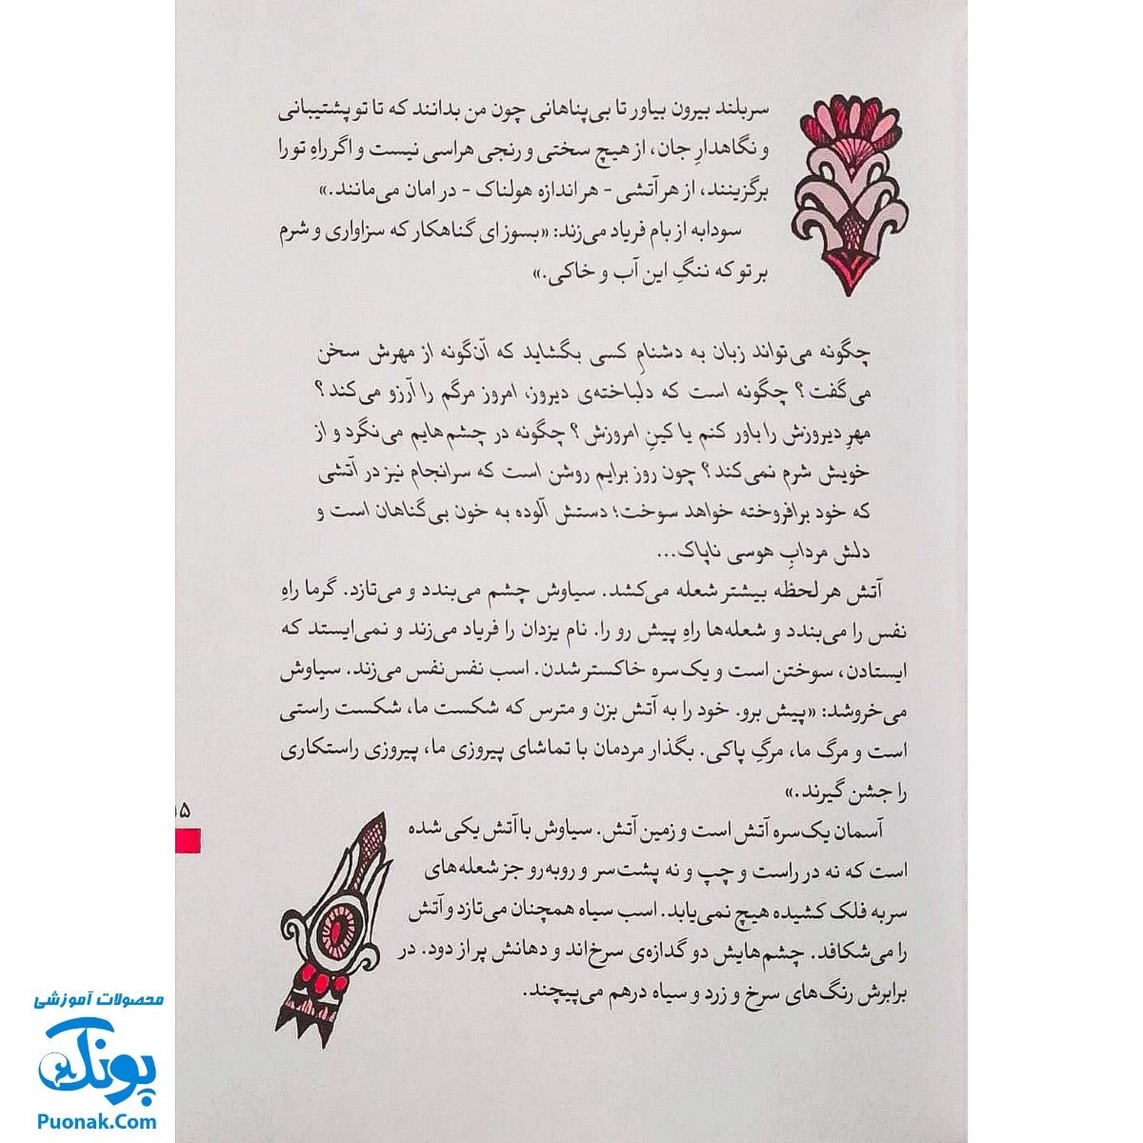 سربلند بیرون بیاور تا بی‌پناهانی چون من بدانند که تا تو پشتیبانی
و نگاهدارِ جان، از هیچ سختی و رنجی هراسی نیست و اگر راهِ تو را
برگزینند، از هر آتشی - هر اندازه هولناک - در امان می‌مانند.»
سودابه از بام فریاد می‌زند: «بسوز ای گناهکار که سزاواری و شرم
بر تو که ننگِ این آب و خاکی.»
چگونه می‌تواند زبان به دشنامِ کسی بگشاید که آن‌گونه از مهرش سخن
می‌گفت؟ چگونه است که دلباخته‌ی دیروز، امروز مرگم را آرزو می‌کند؟
مهرِ دیروزش را باور کنم یا کینِ امروزش؟ چگونه در چشم‌هایم می‌نگرد و از
خویش شرم نمی‌کند؟ چون روز برایم روشن است که سرانجام نیز در آتشی
که خود برافروخته خواهد سوخت؛ دستش آلوده به خون بی‌گناهان است و
دلش مردابِ هوسی ناپاک...
آتش هر لحظه بیشتر شعله می‌کشد. سیاوش چشم می‌بندد و می‌تازد. گرما راهِ
نفس را می‌بندد و شعله‌ها راهِ پیش رو را. نام یزدان را فریاد می‌زند و نمی‌ایستد که
ایستادن، سوختن است و یک‌سره خاکستر شدن. اسب نفس‌نفس می‌زند. سیاوش
می‌خروشد: «پیش برو. خود را به آتش بزن و مترس که شکست ما، شکست راستی
است و مرگ ما، مرگِ پاکی. بگذار مردمان با تماشای پیروزی ما، پیروزی راستکاری
را جشن گیرند.»
۱۵
آسمان یک‌سره آتش است و زمین آتش. سیاوش با آتش یکی شده
است که نه در راست و چپ و نه پشت‌سر و روبه‌رو جز شعله‌های
سر به فلک کشیده هیچ نمی‌یابد. اسب سیاه همچنان می‌تازد و آتش
را می‌شکافد. چشم‌هایش دو گدازه‌ی سرخ‌اند و دهانش پر از دود. در
برابرش رنگ‌های سرخ و زرد و سیاه درهم می‌پیچند.
محصولات آموزشی
پونک
Puonak.Com